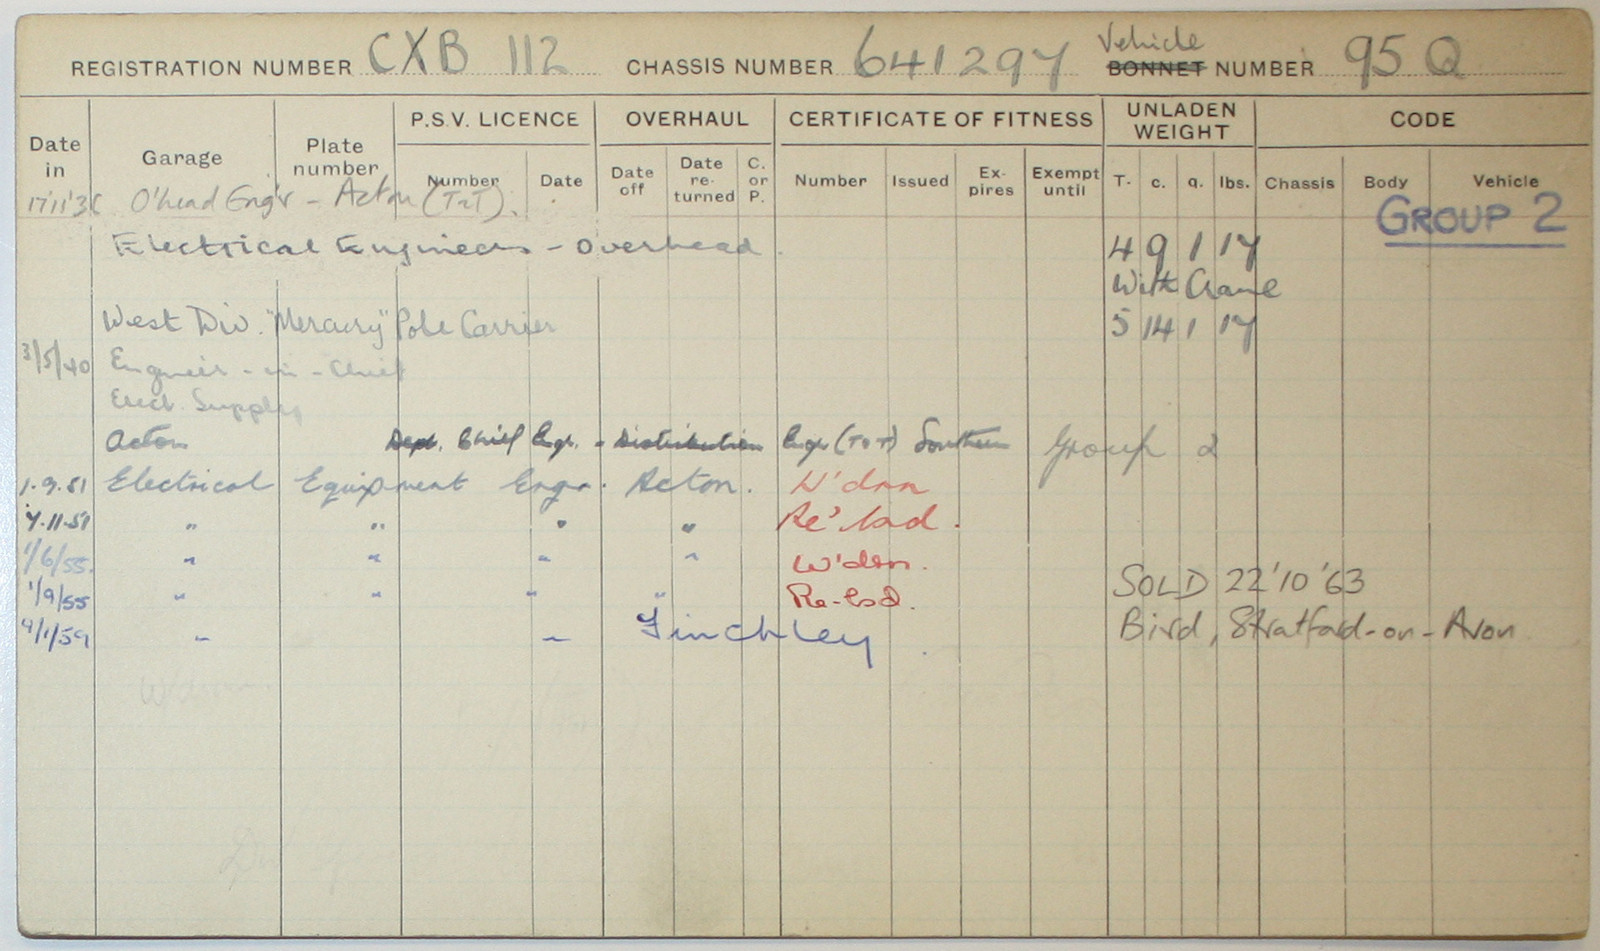 REGISTRATION NUMBER CXB 112 CHASSIS NUMBER 641297 Vehicle BONNET NUMBER 95 Q
Date in Garage Plate number P.S.V. LICENCE Number Date OVERHAUL Date off Date re-turned C. or P. CERTIFICATE OF FITNESS Number Issued Ex-pires Exempt until UNLADEN WEIGHT T. c. q. lbs. CODE Chassis Body Vehicle
17'11'36 O'head Eng'r - Acton (T&T). GROUP 2
Electrical Engineers - Overhead. 4 9 1 17
With Crane
West Div. "Mercury" Pole Carrier 5 14 1 17
3/5/40 Engineer-in-Chief
Elect. Supply
Acton Dept. Chief Engr. - Distribution Engr (T&T) Southern Group 2
1.9.51 Electrical Equipment Engr. Acton. W'drn
7.11.51 " " " " Re'lsd.
1/6/55. " " " " W'drn.
1/9/55 " " " " Re-lsd. SOLD 22'10'63
9/1/59 " " Finchley Bird, Stratford-on-Avon
W'drawn